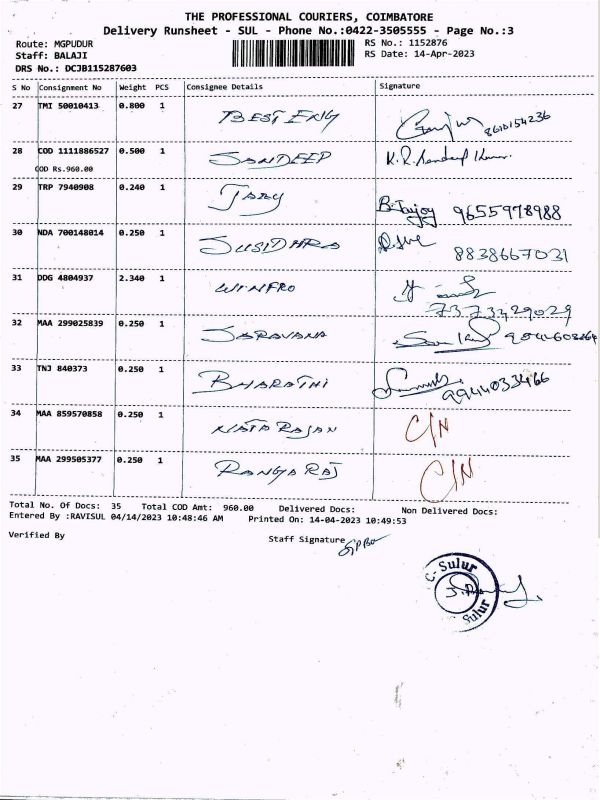 THE PROFESSIONAL COURIERS, COIMBATORE
Delivery Runsheet - SUL - Phone No.:0422-3505555 - Page No.:3
Route: MGPUDUR
RS No.: 1152876
Staff: BALAJI
RS Date: 14-Apr-2023
DRS No.: DCJB115287603
S No Consignment No Weight PCS Consignee Details Signature
27 TMI 50010413 0.800 1 BEST ENG 8610154236
28 COD 1111886527 0.500 1 SANDEEP K.R.Sandeep Kumar.
COD Rs.960.00
29 TRP 7940908 0.240 1 JAJOY B.Jayjoy 9655978988
30 NDA 700148014 0.250 1 SUSIDHRA 8838667031
31 DDG 4804937 2.340 1 WINFRO
7373429029
32 MAA 299025839 0.250 1 SARAVANA
33 TNJ 840373 0.250 1 BHARATHI 9944033466
34 MAA 859570858 0.250 1 NATARAJAN C/N
35 MAA 299505377 0.250 1 RANGARAJ C/N
Total No. Of Docs: 35 Total COD Amt: 960.00 Delivered Docs: Non Delivered Docs:
Entered By :RAVISUL 04/14/2023 10:48:46 AM Printed On: 14-04-2023 10:49:53
Verified By Staff Signature
C- Sulur
Sulur